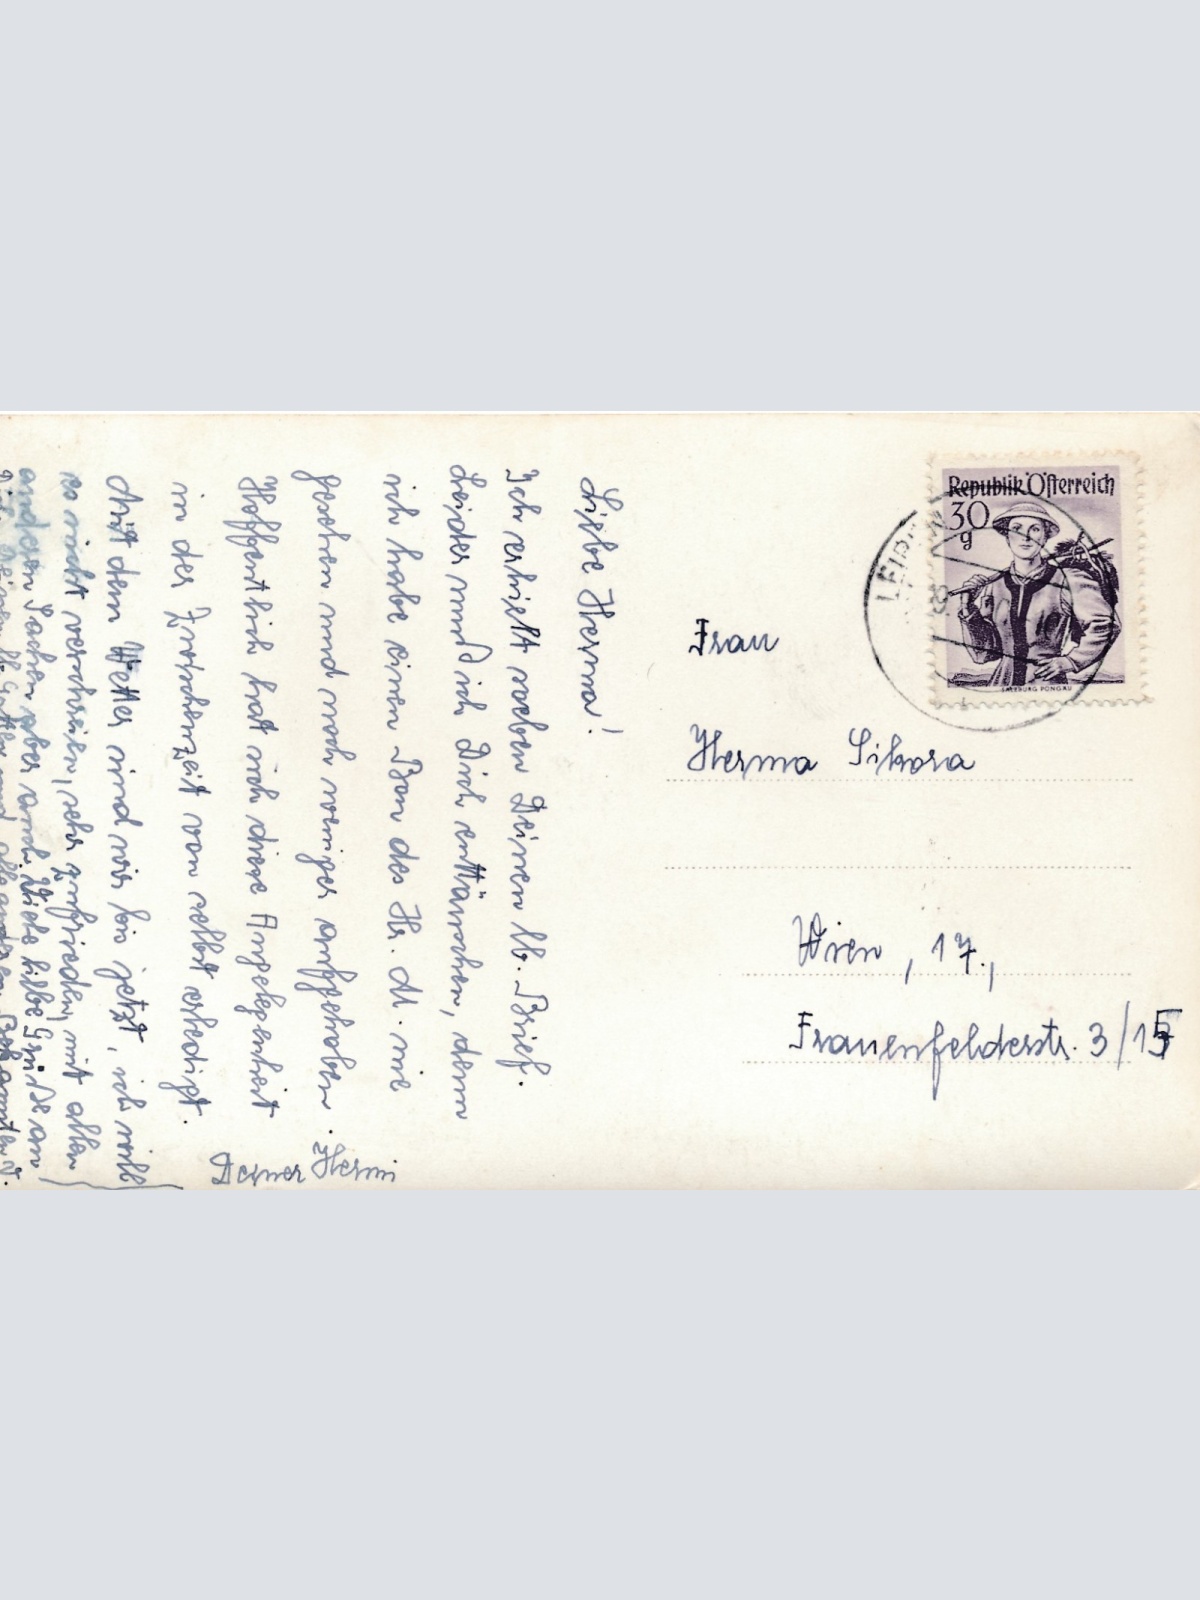 Liebe Herma!
Ich erhielt soeben Deinen lb. Brief.
Leider muß ich Dich enttäuschen, denn
ich habe einen Bon des Hr. M. nie
gesehen und noch weniger aufgehoben.
Hoffentlich hat sich diese Angelegenheit
in der Zwischenzeit von selbst erledigt.
Mit dem Wetter sind wir bis jetzt, ich will
es nicht verschreien, sehr zufrieden, mit allen
anderen Sachen aber auch. Liebe Grüße an
Gatten und alle anderen Bekannten v.
Deiner Hermi
Republik Österreich
30
g
SALZBURG PONGAU
Frau
Herma Sikora
Wien, 17.,
Frauenfelderstr. 3/15